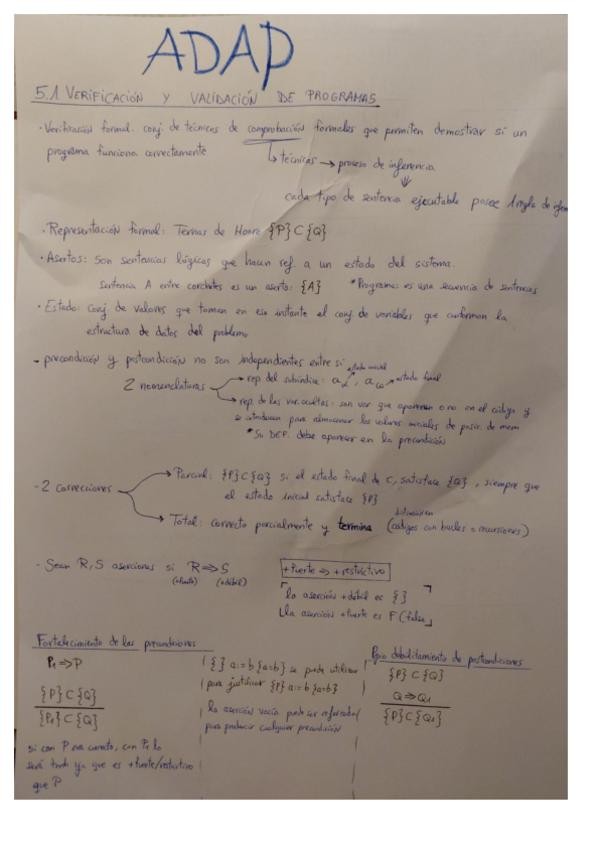 ADAP
5.1 VERIFICACIÓN Y VALIDACIÓN DE PROGRAMAS
· Verificación formal: conj. de técnicas de comprobación formales que permiten demostrar si un
programa funciona correctamente
↳ técnicas → proceso de inferencia
⇓
cada tipo de sentencia ejecutable posee 1 regla de
· Representación formal: Ternas de Hoare {P} C {Q}
· Asertos: son sentencias lógicas que hacen ref. a un estado del sistema.
sentencia A entre corchetes es un aserto: {A} * Programa es una secuencia de sentencias
· Estado: conj. de valores que toman en ese instante el conj. de variables que conforman la
estructura de datos del problema
- precondición y postcondición no son independientes entre si
2 nomenclaturas → rep. del subíndice: aα, aω
estado inicial
estado final
→ rep. de las var. ocultas: son var que aparecen o no en el código y
se introducen para almacenar los valores iniciales de posic. de mem
* Su DEF. debe aparecer en la precondición
- 2 correcciones → Parcial: {P} C {Q} si el estado final de C, satisface {Q}, siempre que
el estado inicial satisface {P}
→ Total: correcto parcialmente y termina (códigos con bucles o recursiones)
· Sean R, S aserciones si R ⇒ S
(+fuerte) (+débil)
+fuerte ⇒ +restrictivo
la aserción +débil es { }
la aserción +fuerte es F (falsa)
Fortalecimiento de las precondiciones
P₁ ⇒ P
{P} C {Q}
{P₁} C {Q}
si con P era correcto, con P₁ lo
será tmb ya que es +fuerte/restrictivo
que P
{ } a:=b {a=b} se puede utilizar
para justificar {P} a:=b {a=b}
la aserción vacía puede ser reforzada
para producir cualquier precondición
debilitamiento de postcondiciones
{P} C {Q}
Q ⇒ Q₁
{P} C {Q₁}